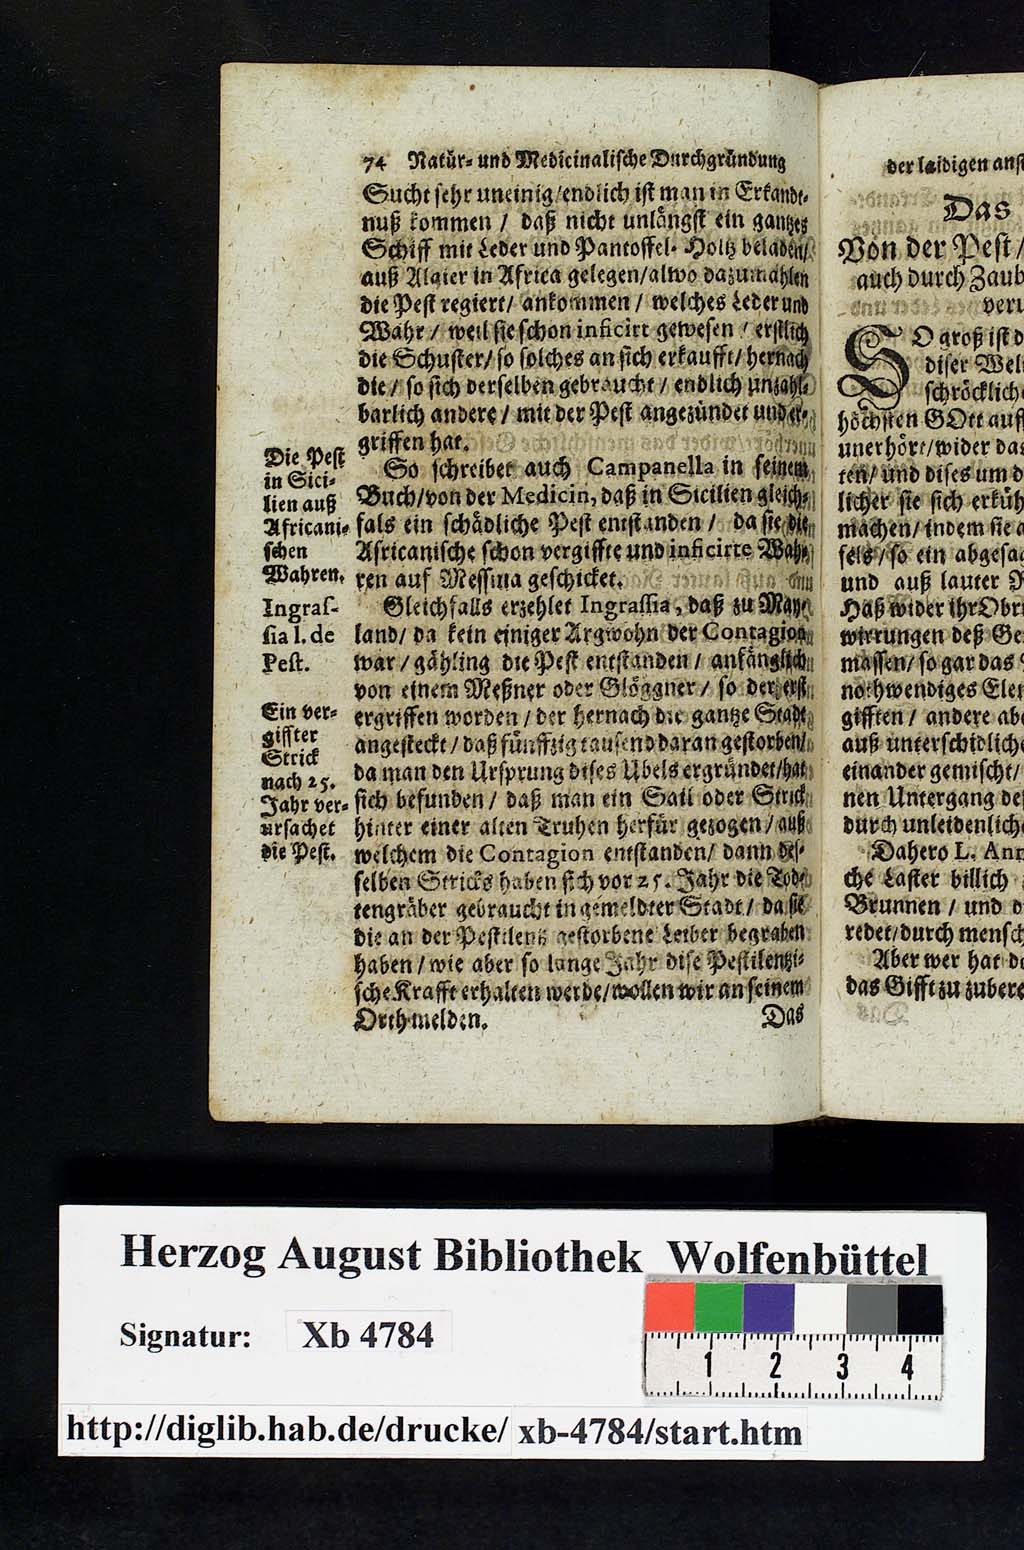 74 Natür- und Medicinalische Durchgründung
Sucht sehr uneinig/endlich ist man in Erkandt-
nuß kommen / daß nicht unlängst ein gantzes
Schiff mit Leder und Pantoffel- Holtz beladen/
auß Algier in Africa gelegen/alwo dazumahlen
die Pest regiert/ ankommen / welches Leder und
Wahr / weil sie schon inficirt gewesen / erstlich
die Schuster/ so solches an sich erkaufft/ hernach
die / so sich derselben gebraucht / endlich unzahl-
barlich andere / mit der Pest angezündet und er-
griffen hat.
So schreibet auch Campanella in seinem
Buch/von der Medicin, daß in Sicilien gleich-
fals ein schädliche Pest entstanden / da sie die
Africanische schon vergiffte und inficirte Wah-
ren auf Messina geschicket.
Gleichfalls erzehlet Ingrassia, daß zu May-
land/ da kein einiger Argwohn der Contagion
war / gähling die Pest entstanden / anfänglich
von einem Meßner oder Glöggner / so der erst
ergriffen worden / der hernach die gantze Stadt
angesteckt / daß fünffzig tausend daran gestorben/
da man den Ursprung dises Ubels ergründet/hat
sich befunden / daß man ein Sail oder Strick
hinter einer alten Truhen herfür gezogen / auß
welchem die Contagion entstanden/ dann des-
selben Stricks haben sich vor 25. Jahr die Tod-
tengräber gebraucht in gemeldter Stadt / da sie
die an der Pestilentz gestorbene Leiber begraben
haben / wie aber so lange Jahr dise Pestilentzi-
sche Krafft erhalten werde/wollen wir an seinem
Orth melden.
Das
Die Pest
in Sici-
lien auß
Africani-
schen
Wahren.
Ingras-
sia l. de
Pest.
Ein ver-
giffter
Strick
nach 25.
Jahr ver-
ursachet
die Pest.
der laidigen
Das
Von der Pest /
auch durch
SO groß ist
diser
höchsten GOtt
unerhört/wider das
ten/ und dises um
licher sie sich
machen/ indem sie
fels / so ein
und auß lauter
Haß wider ihr
wirrungen deß
massen/ so gar das
nothwendiges
gifften / andere
auß
einander gemischt/
nen Untergang
durch
Dahero L.
che Laster billich
Brunnen / und
redet/durch
Aber wer hat
das Gifft zu
Herzog August Bibliothek Wolfenbüttel
Signatur: Xb 4784
1 2 3 4
http://diglib.hab.de/drucke/ xb-4784/start.htm